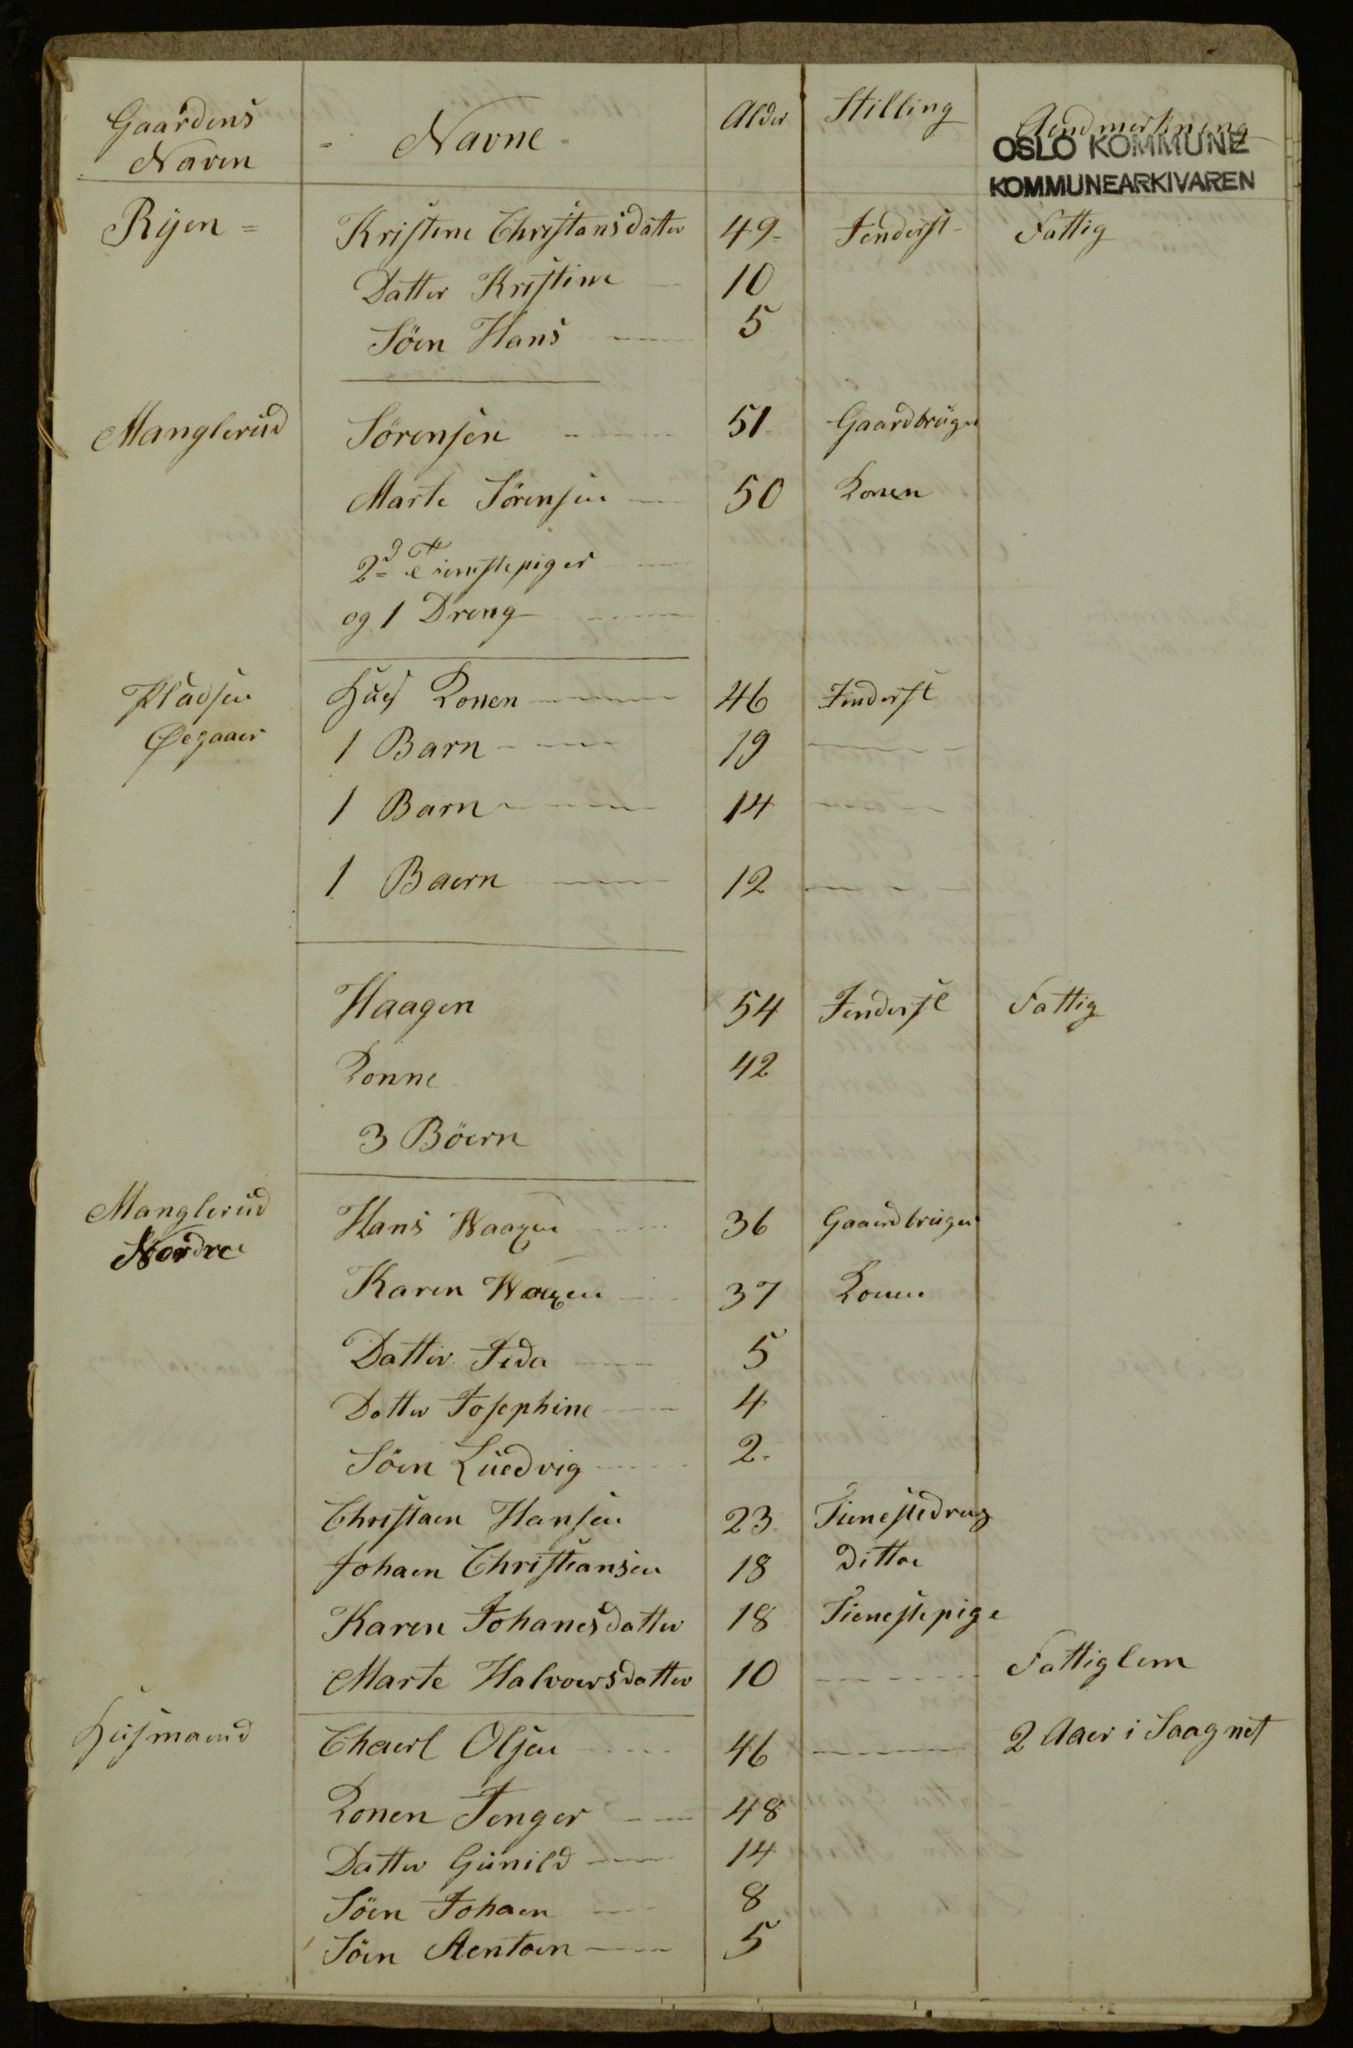 Gaardens Navn - Navne - Alder Stilling Aendmerkning
OSLO KOMMUNE
KOMMUNEARKIVAREN
Ryen = Kristine Christansdatter 49 - Jenderst - Fattig
Datter Kristine 10
Söen Hans 5
Manglerud Sørensen 51 Gaardbruger
Marte Sörensen 50 Konen
2d Tienestepiger
og 1 Dreng
Pladsen Øegaaer Huus Konen 46 Jinderst
1 Barn 19
1 Barn 14
1 Baern 12
Haagen 54 Jenderst Fattig
Konne 42
3 Böern
Manglerud Nordre Hans Waagen 36 Gaardbruger
Karen Waagen 37 Konen
Datter Jida 5
Datter Josephine 4
Söen Luedvig 2
Christaen Hansen 23 Tienestedreng
Johaen Christiansen 18 Dittoe
Karen Johanesdatter 18 Tienestepige
Marte Halvoersdatter 10 Fattiglem
Husmaend Chaerl Olsen 46 2 Aaer i Saagnet
Konen Jenger 48
Datter Gunild 14
Söen Johaen 8
Söen Aentoen 5